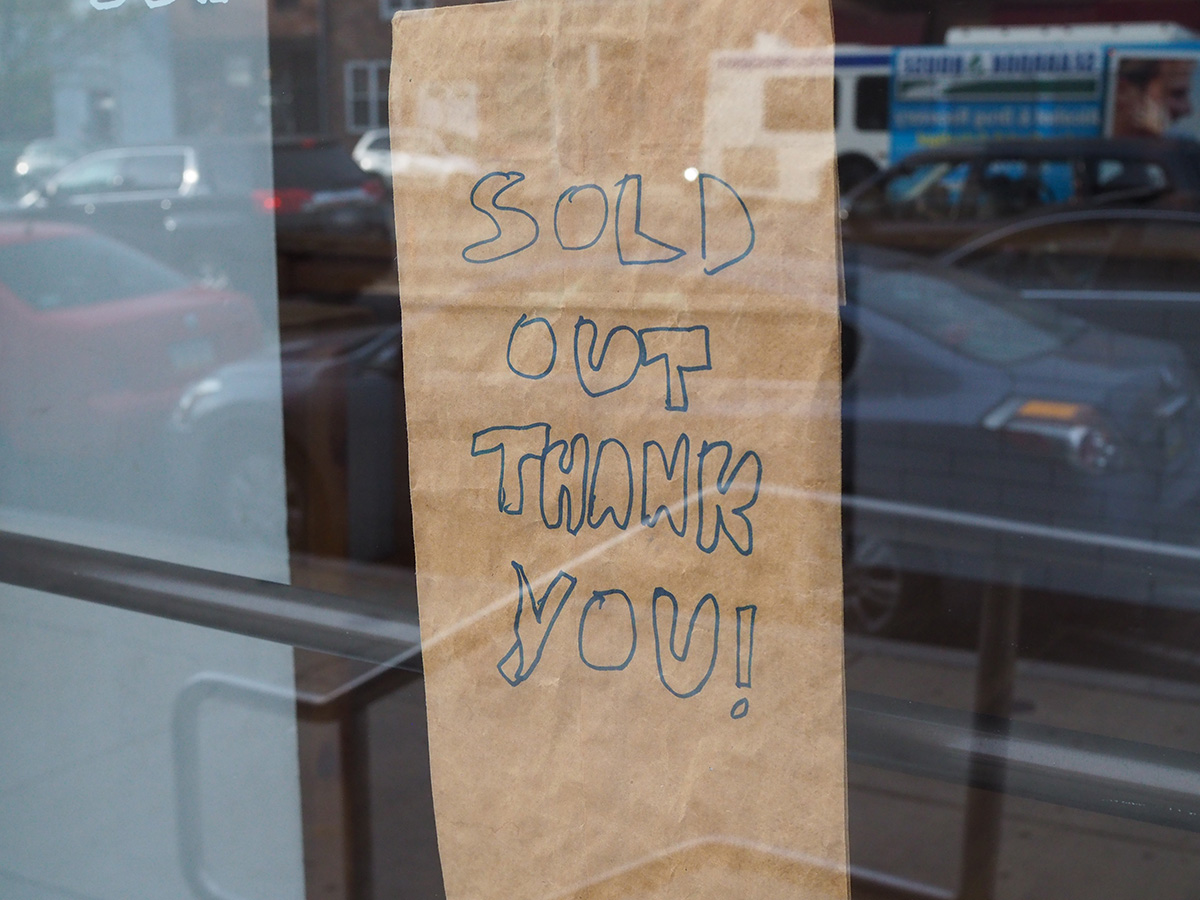 SOLD
OUT
THANK
YOU!